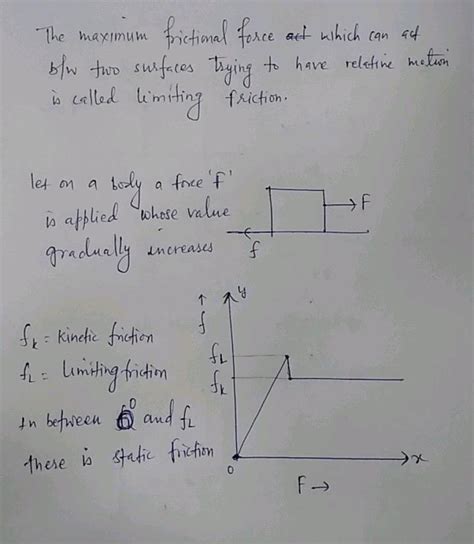 The maximum frictional force act which can act
b/w two surfaces trying to have relative motion
is called limiting friction.
let on a body a force 'f'
is applied whose value
gradually increases
F
f
y
f
fk = kinetic friction
fL = limiting friction
In between 0 and fL
there is static friction
fL
fk
0
x
F →